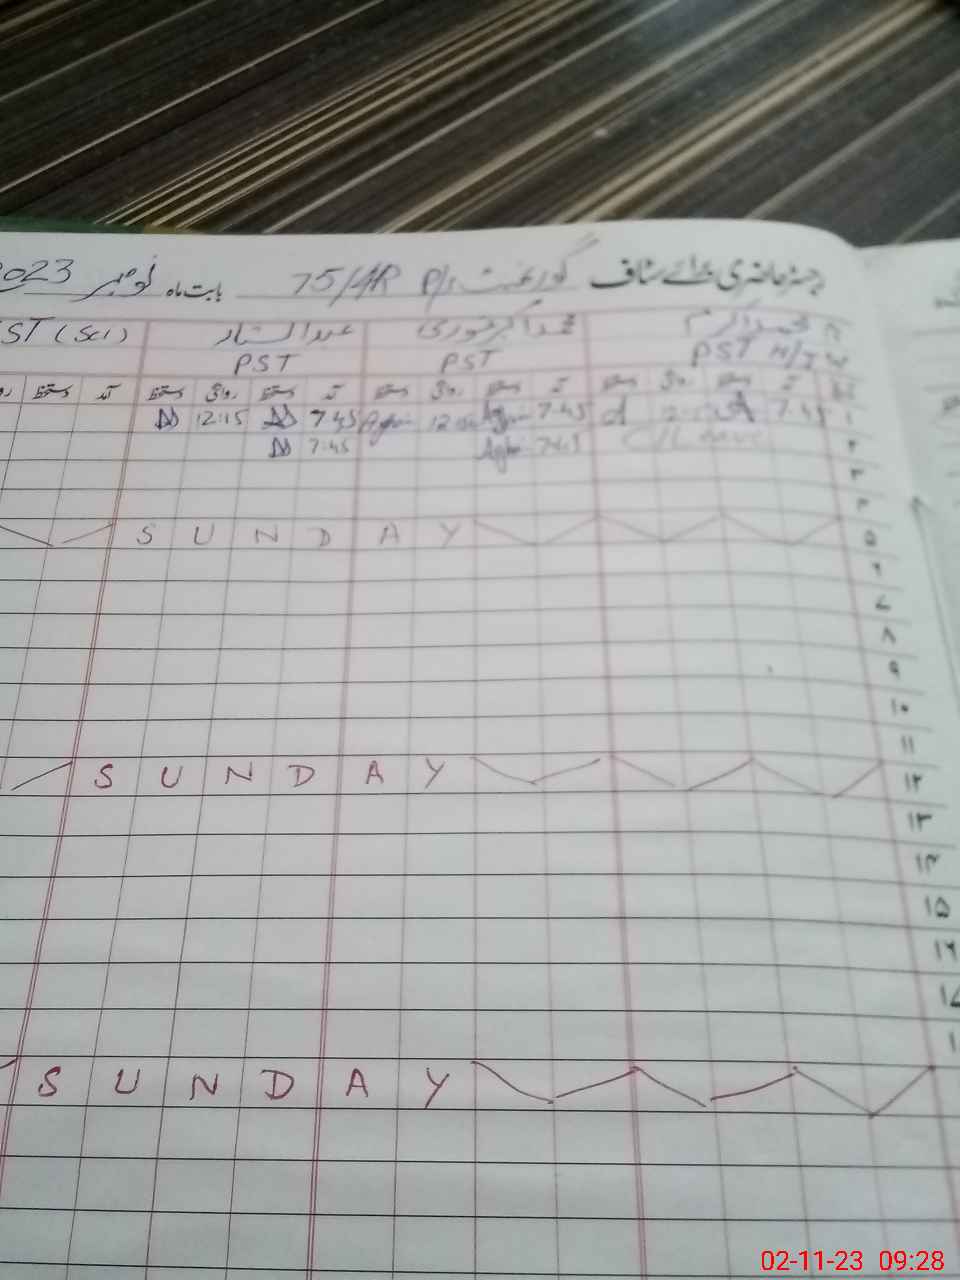 رجسٹر حاضری برائے سٹاف گورنمنٹ 75/4R P/S بابت ماہ نومبر 2023
محمد اکرم محمد اکبر غوری عبدالستار ST (Sci)
PST H/T PST PST
آمد دستخط روانگی دستخط آمد دستخط روانگی دستخط آمد دستخط روانگی دستخط آمد دستخط
۱ 7.45 7.45 7.45 12:15
۲ C/Leave 7.45 7:45
۳
۴
۵ S U N D A Y
۶
۷
۸
۹
۱۰
۱۱
۱۲ S U N D A Y
۱۳
۱۴
۱۵
۱۶
S U N D A Y
02-11-23 09:28